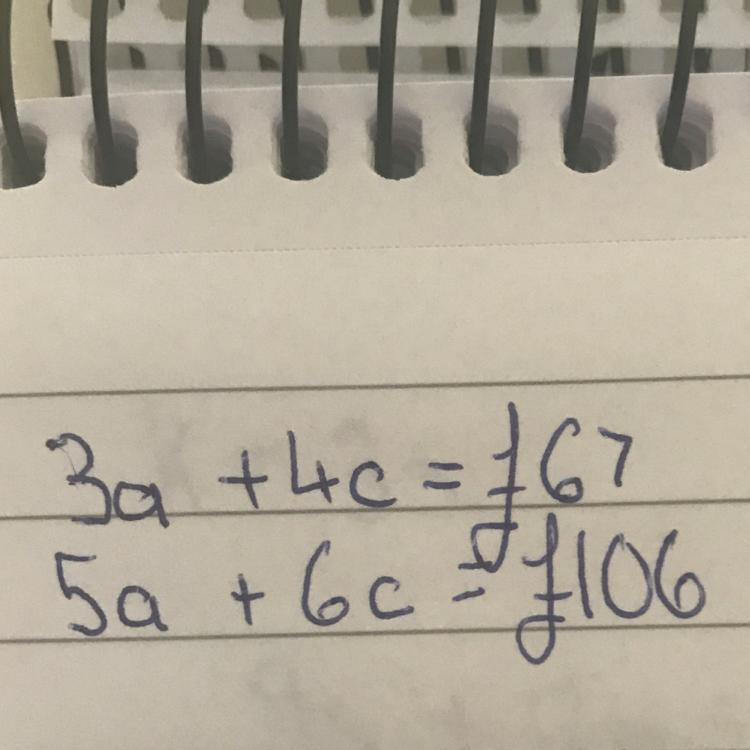 3a + 4c = £67
5a + 6c = £106